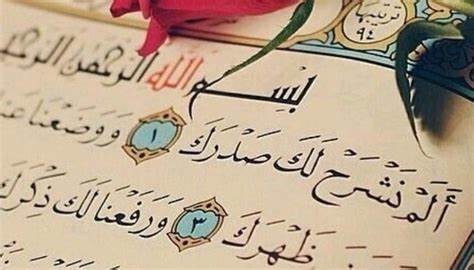 ترتيبها ٩٤
بِسْمِ اللَّهِ الرَّحْمَٰنِ الرَّحِيمِ
أَلَمْ نَشْرَحْ لَكَ صَدْرَكَ ١ وَوَضَعْنَا عَن
ظَهْرَكَ ٣ وَرَفَعْنَا لَكَ ذِكْرَكَ